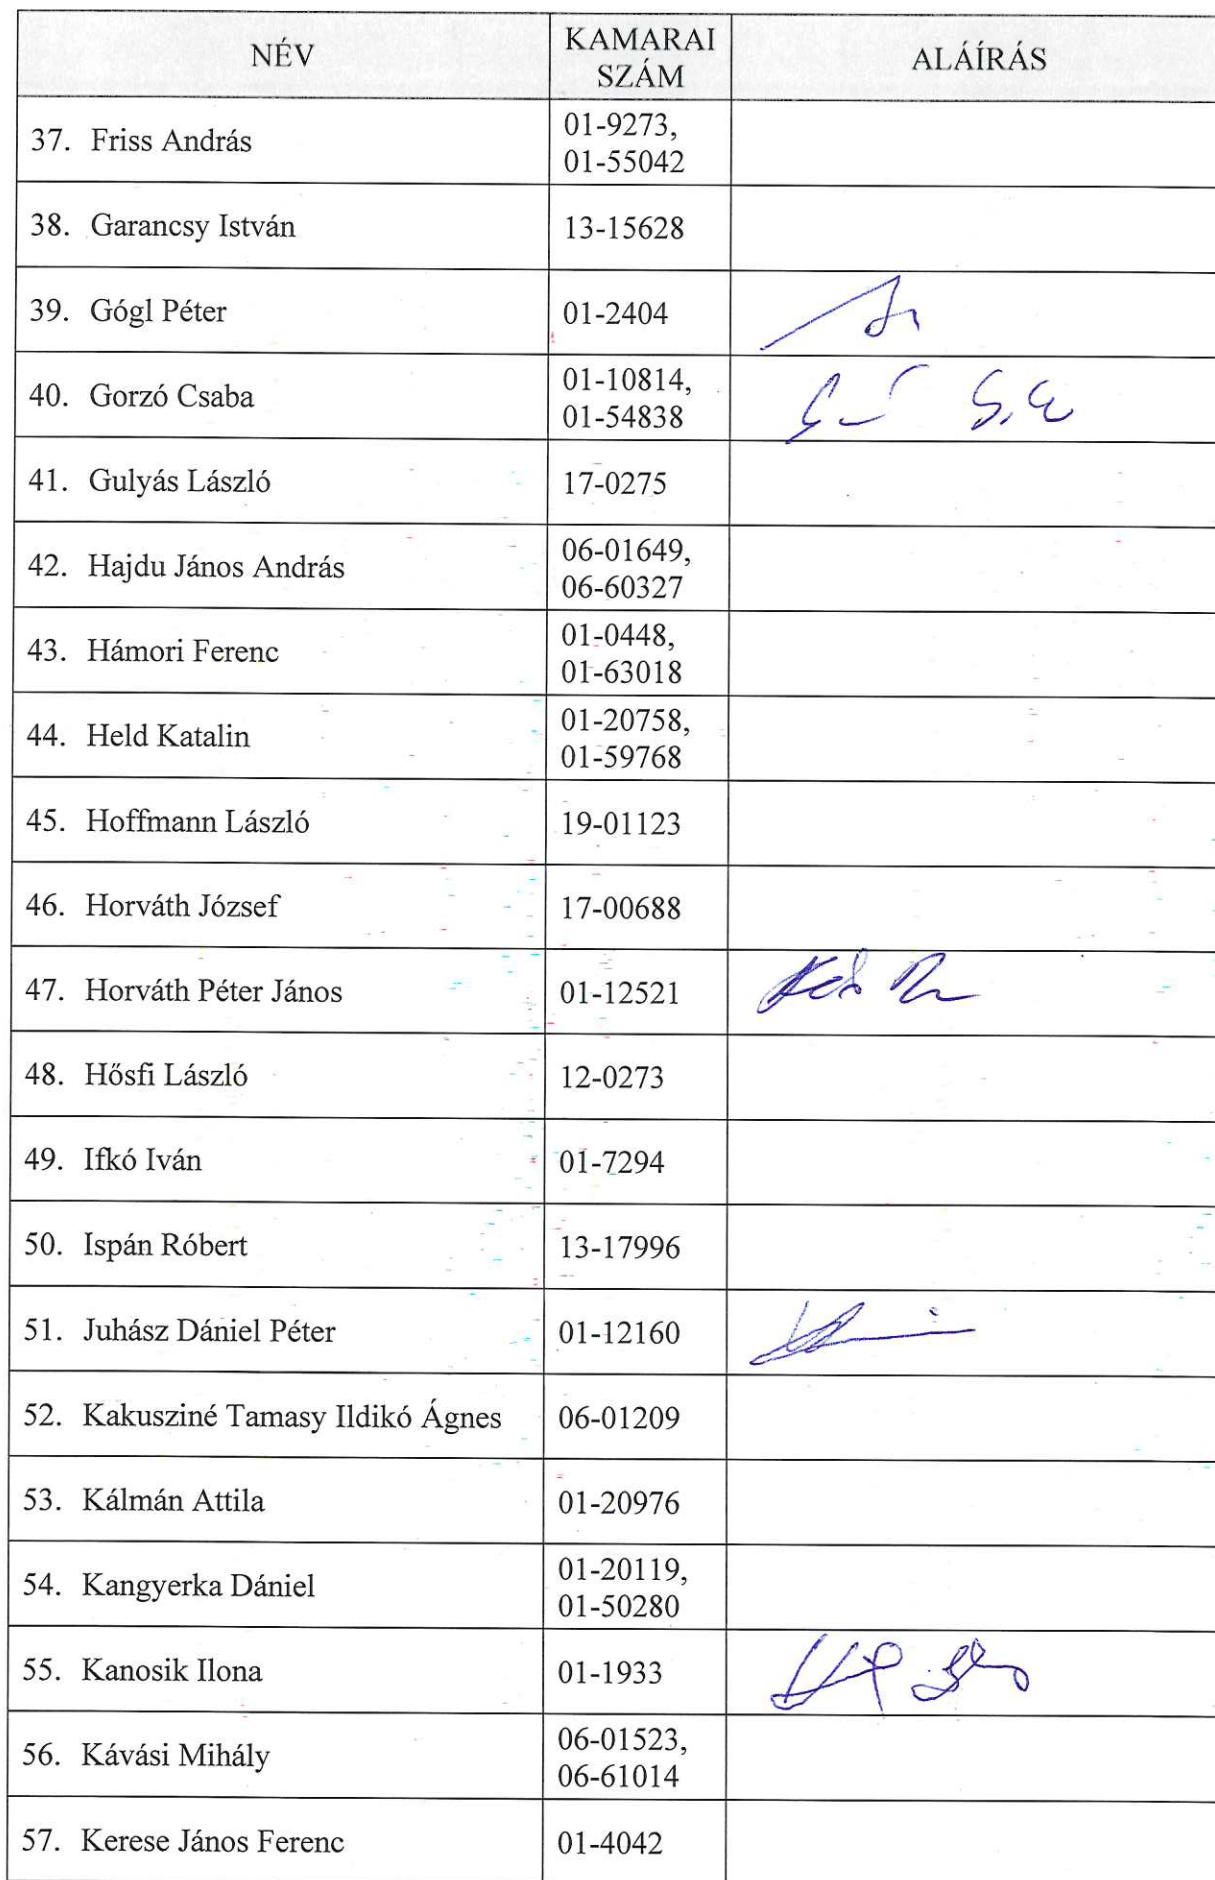 NÉV
KAMARAI
SZÁM
ALÁÍRÁS
37. Friss András
01-9273,
01-55042
38. Garancsy István
13-15628
39. Gógl Péter
01-2404
40. Gorzó Csaba
01-10814,
01-54838
41. Gulyás László
17-0275
42. Hajdu János András
06-01649,
06-60327
43. Hámori Ferenc
01-0448,
01-63018
44. Held Katalin
01-20758,
01-59768
45. Hoffmann László
19-01123
46. Horváth József
17-00688
47. Horváth Péter János
01-12521
48. Hősfi László
12-0273
49. Ifkó Iván
01-7294
50. Ispán Róbert
13-17996
51. Juhász Dániel Péter
01-12160
52. Kakusziné Tamasy Ildikó Ágnes
06-01209
53. Kálmán Attila
01-20976
54. Kangyerka Dániel
01-20119,
01-50280
55. Kanosik Ilona
01-1933
56. Kávási Mihály
06-01523,
06-61014
57. Kerese János Ferenc
01-4042